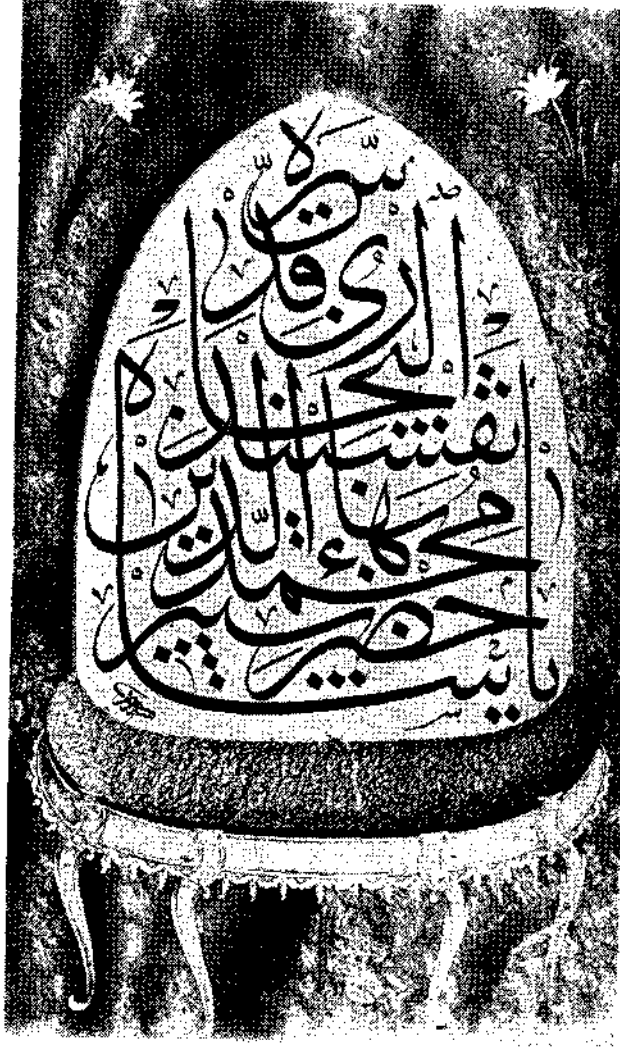 يا
حضرت پير
محمد بهاء الدين
نقشبند
البخارى
قدس سره